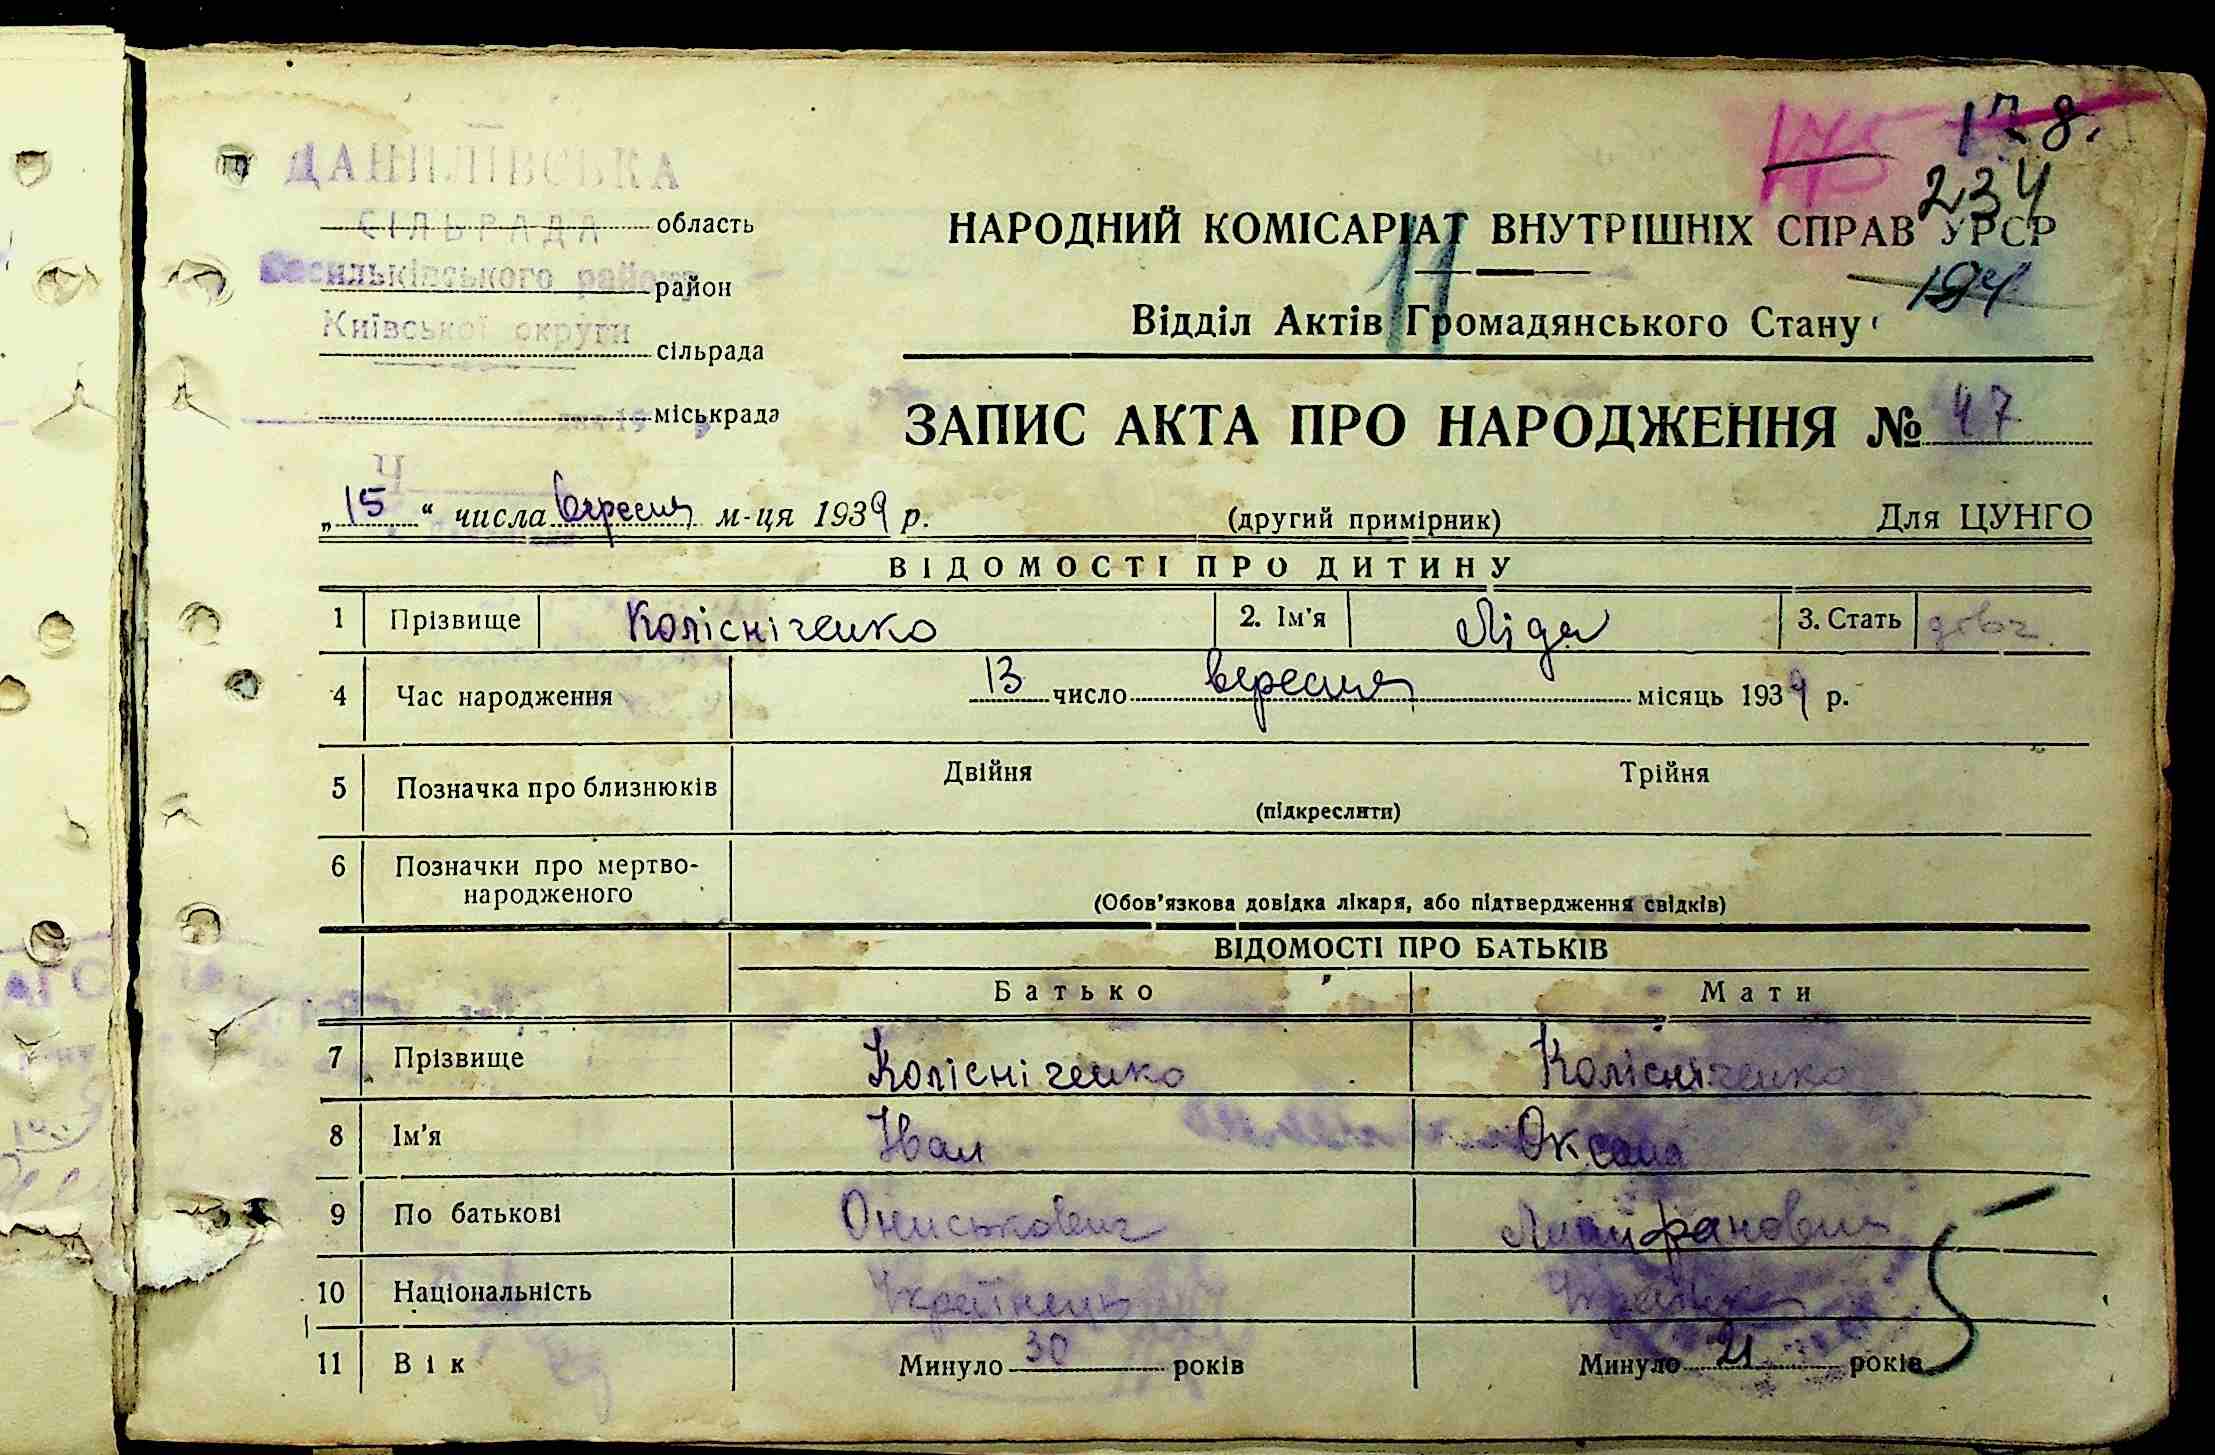 175 178.
ДАНИЛІВСЬКА
СІЛЬРАДА область
Васильківського району район
Київської округи
сільрада
міськрада
234
НАРОДНИЙ КОМІСАРІАТ ВНУТРІШНІХ СПРАВ УРСР
11
194
Відділ Актів Громадянського Стану
ЗАПИС АКТА ПРО НАРОДЖЕННЯ № 47
„15“ числа вересня м-ця 1939 р. (другий примірник) Для ЦУНГО
ВІДОМОСТІ ПРО ДИТИНУ
1 Прізвище Колісніченко 2. Ім'я Ліда 3. Стать дівч.
4 Час народження 13 число вересня місяць 1939 р.
5 Позначка про близнюків Двійня Трійня
(підкреслити)
6 Позначки про мертво-
народженого
(Обов'язкова довідка лікаря, або підтвердження свідків)
ВІДОМОСТІ ПРО БАТЬКІВ
Батько Мати
7 Прізвище Колісніченко Колісніченко
8 Ім'я Іван Оксана
9 По батькові Ониськович
10 Національність Українець Українка
11 Вік Минуло 30 років Минуло 21 років